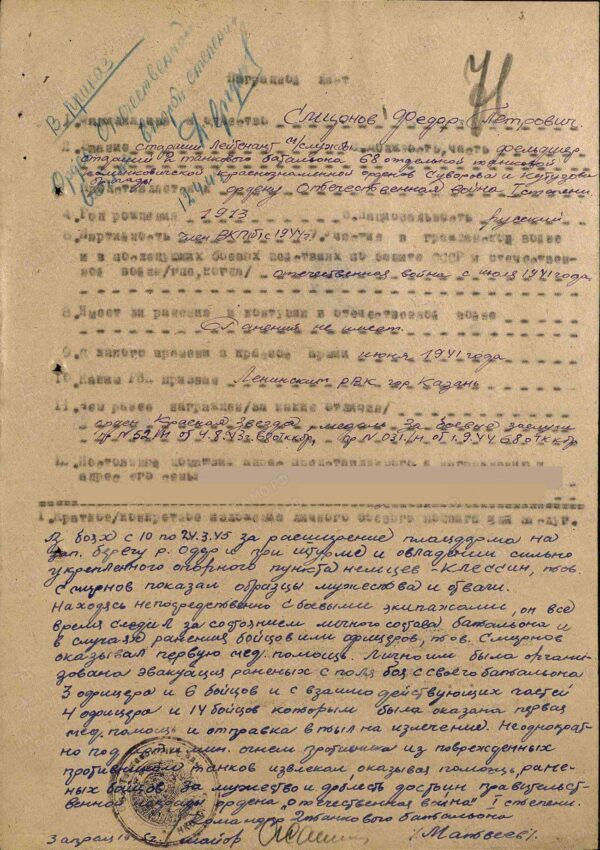 71
В приказ
Отечественной
второй степени
Наградной лист
1. Фамилия, имя и отчество Смирнов Федор Петрович.
2. Звание старший лейтенант м/службы 3. Должность, часть фельдшер
старший 2 танкового батальона 68 отдельной танковой
Краснознаменной орденов Суворова и Кутузова
бригады
Представляется ордену Отечественная война I степени.
4. Год рождения 1913 5. Национальность русский
6. Партийность член ВКП(б) с 1944 г. 7. Участие в гражданской войне
и в последующих боевых действиях по защите СССР и отечествен-
ной войне/где, когда/ отечественная война с июля 1941 года
8. Имеет ли ранения и контузии в отечественной войне
Ранений не имеет.
9. С какого времени в красной армии июня 1941 года
10. Каким РВК призван Ленинским РВК гор Казань
11. Чем ранее награжден/за какие отличия/
орден Красная Звезда, медаль За боевые заслуги
пр N 52/н от 9.8.43г. 68 отк.бр, пр N 031/н от 1.9.44 68 отк.бр
12. Постоянный домашний адрес представляемого к награждению и
адрес его семьи
1. Краткое/конкретное изложение личного боевого подвига или заслуг.
В боях с 10 по 24.3.45 за расширение плацдарма на
зап. берегу р. Одер и при штурме и овладении сильно
укрепленного опорного пункта немцев – Клессин, тов.
Смирнов показал образцы мужества и отваги.
Находясь непосредственно с боевыми экипажами, он все
время следил за состоянием личного состава батальона и
в случаях ранения бойцов или офицеров, тов. Смирнов
оказывал первую мед. помощь. Лично им была органи-
зована эвакуация раненых с поля боя с своего батальона
3 офицера и 6 бойцов и с взаимодействующих частей
4 офицера и 14 бойцов которым была оказана первая
мед. помощь и отправка в тыл на излечение. Неоднократ-
но под мин. огнем противника из поврежденных
противником танков извлекал, оказывая помощь, ране-
ных бойцов. За мужество и доблесть достоин правительст-
венной награды ордена „Отечественная война" I степени.
Командир 2 танкового батальона
3 апреля 1945 г. майор /Матвеев/.